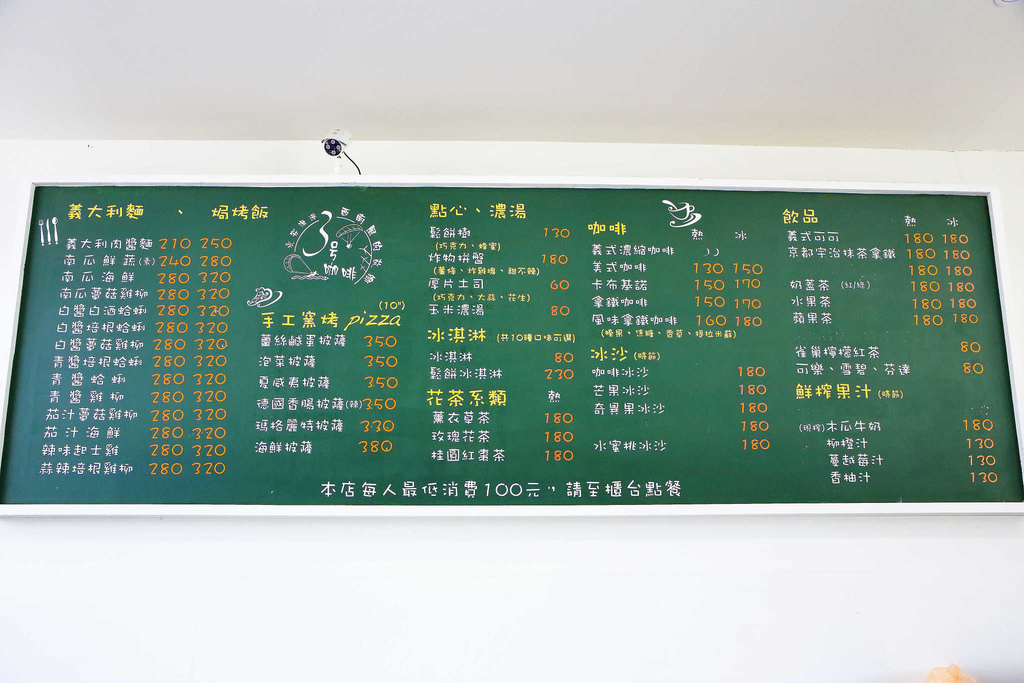 義大利麵 、 焗烤飯
義大利肉醬麵 210 250
南瓜鮮蔬(素) 240 280
南瓜海鮮 280 320
南瓜蘑菇雞柳 280 320
白醬白酒蛤蜊 280 320
白醬培根蛤蜊 280 320
白醬蘑菇雞柳 280 320
青醬培根蛤蜊 280 320
青醬蛤蜊 280 320
青醬雞柳 280 320
茄汁蘑菇雞柳 280 320
茄汁海鮮 280 320
辣味起士雞 280 320
蒜辣培根雞柳 280 320
3号咖啡
手工窯烤pizza (10")
蕾絲鹹蛋披薩 350
泡菜披薩 350
夏威夷披薩 350
德國香腸披薩(辣) 350
瑪格麗特披薩 330
海鮮披薩 380
點心、濃湯
鬆餅 130
(巧克力、蜂蜜)
炸物拼盤 180
(薯條、炸雞塊、甜不辣)
厚片土司 60
(巧克力、大蒜、花生)
玉米濃湯 80
冰淇淋 (共10種口味可選)
冰淇淋 80
鬆餅冰淇淋 230
花茶系類 熱
薰衣草茶 180
玫瑰花茶 180
桂圓紅棗茶 180
咖啡 熱 冰
義式濃縮咖啡
美式咖啡 130 150
卡布基諾 150 170
拿鐵咖啡 150 170
風味拿鐵咖啡 160 180
(榛果、焦糖、香草、提拉米蘇)
冰沙 (時節)
咖啡冰沙 180
芒果冰沙 180
奇異果冰沙 180
水蜜桃冰沙 180
飲品 熱 冰
義式可可 180 180
京都宇治抹茶拿鐵 180 180
180 180
奶蓋茶 (紅/綠) 180 180
水果茶 180 180
蘋果茶 180 180
雀巢檸檬紅茶 80
可樂、雪碧、芬達 80
鮮榨果汁 (時節)
(現榨)木瓜牛奶 180
柳橙汁 130
蔓越莓汁 130
香柚汁 130
本店每人最低消費100元,,請至櫃台點餐